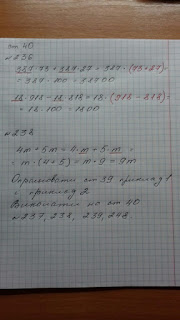 ст 40
№236
329·73 + 329·27 = 329·(73+27)=
= 329·100 = 32900
18·918 - 18·818 = 18·(918 - 818)=
= 18·100 = 1800
№238
4m + 5m = 4·m + 5·m =
= m·(4+5) = m·9 = 9m
Опрацювати ст 39 приклад 1
і приклад 2
Виконати на ст 40
№237, 238, 239, 248